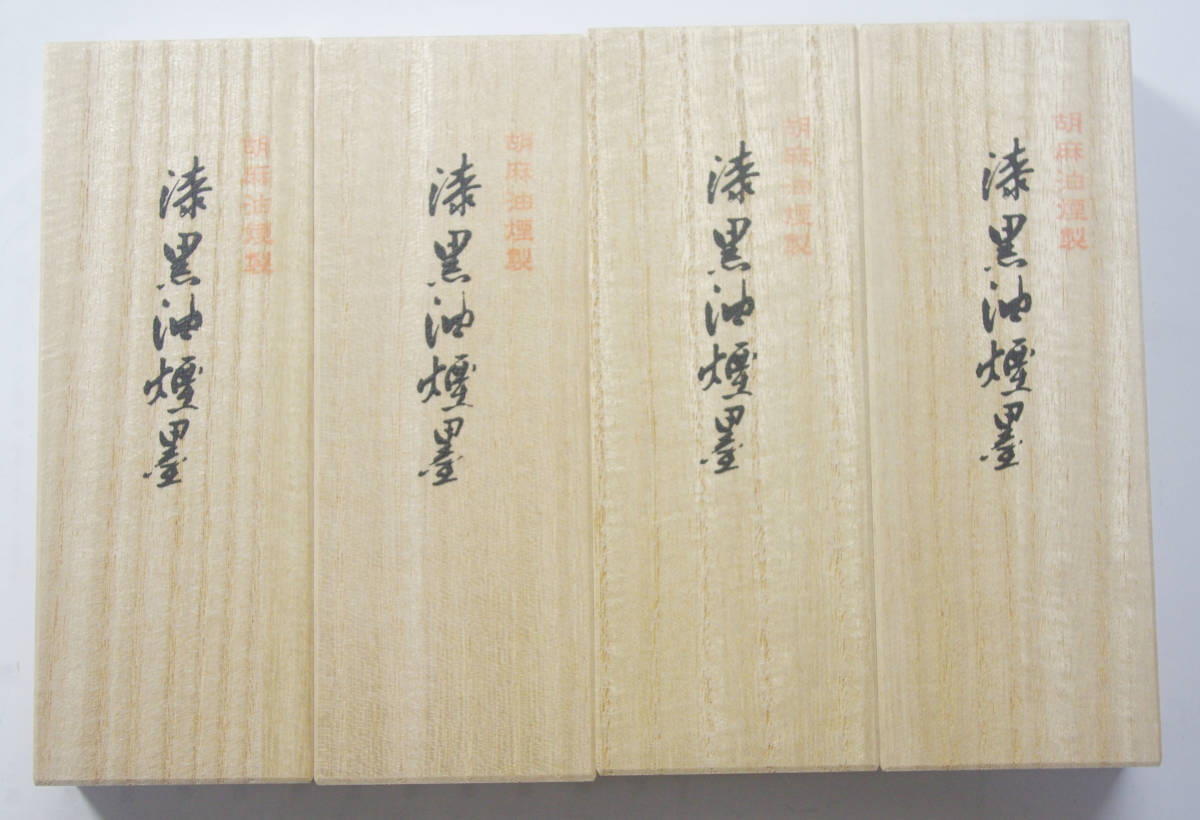 胡麻油煙製
漆黒油煙墨
胡麻油煙製
漆黒油煙墨
胡麻油煙製
漆黒油煙墨
胡麻油煙製
漆黒油煙墨